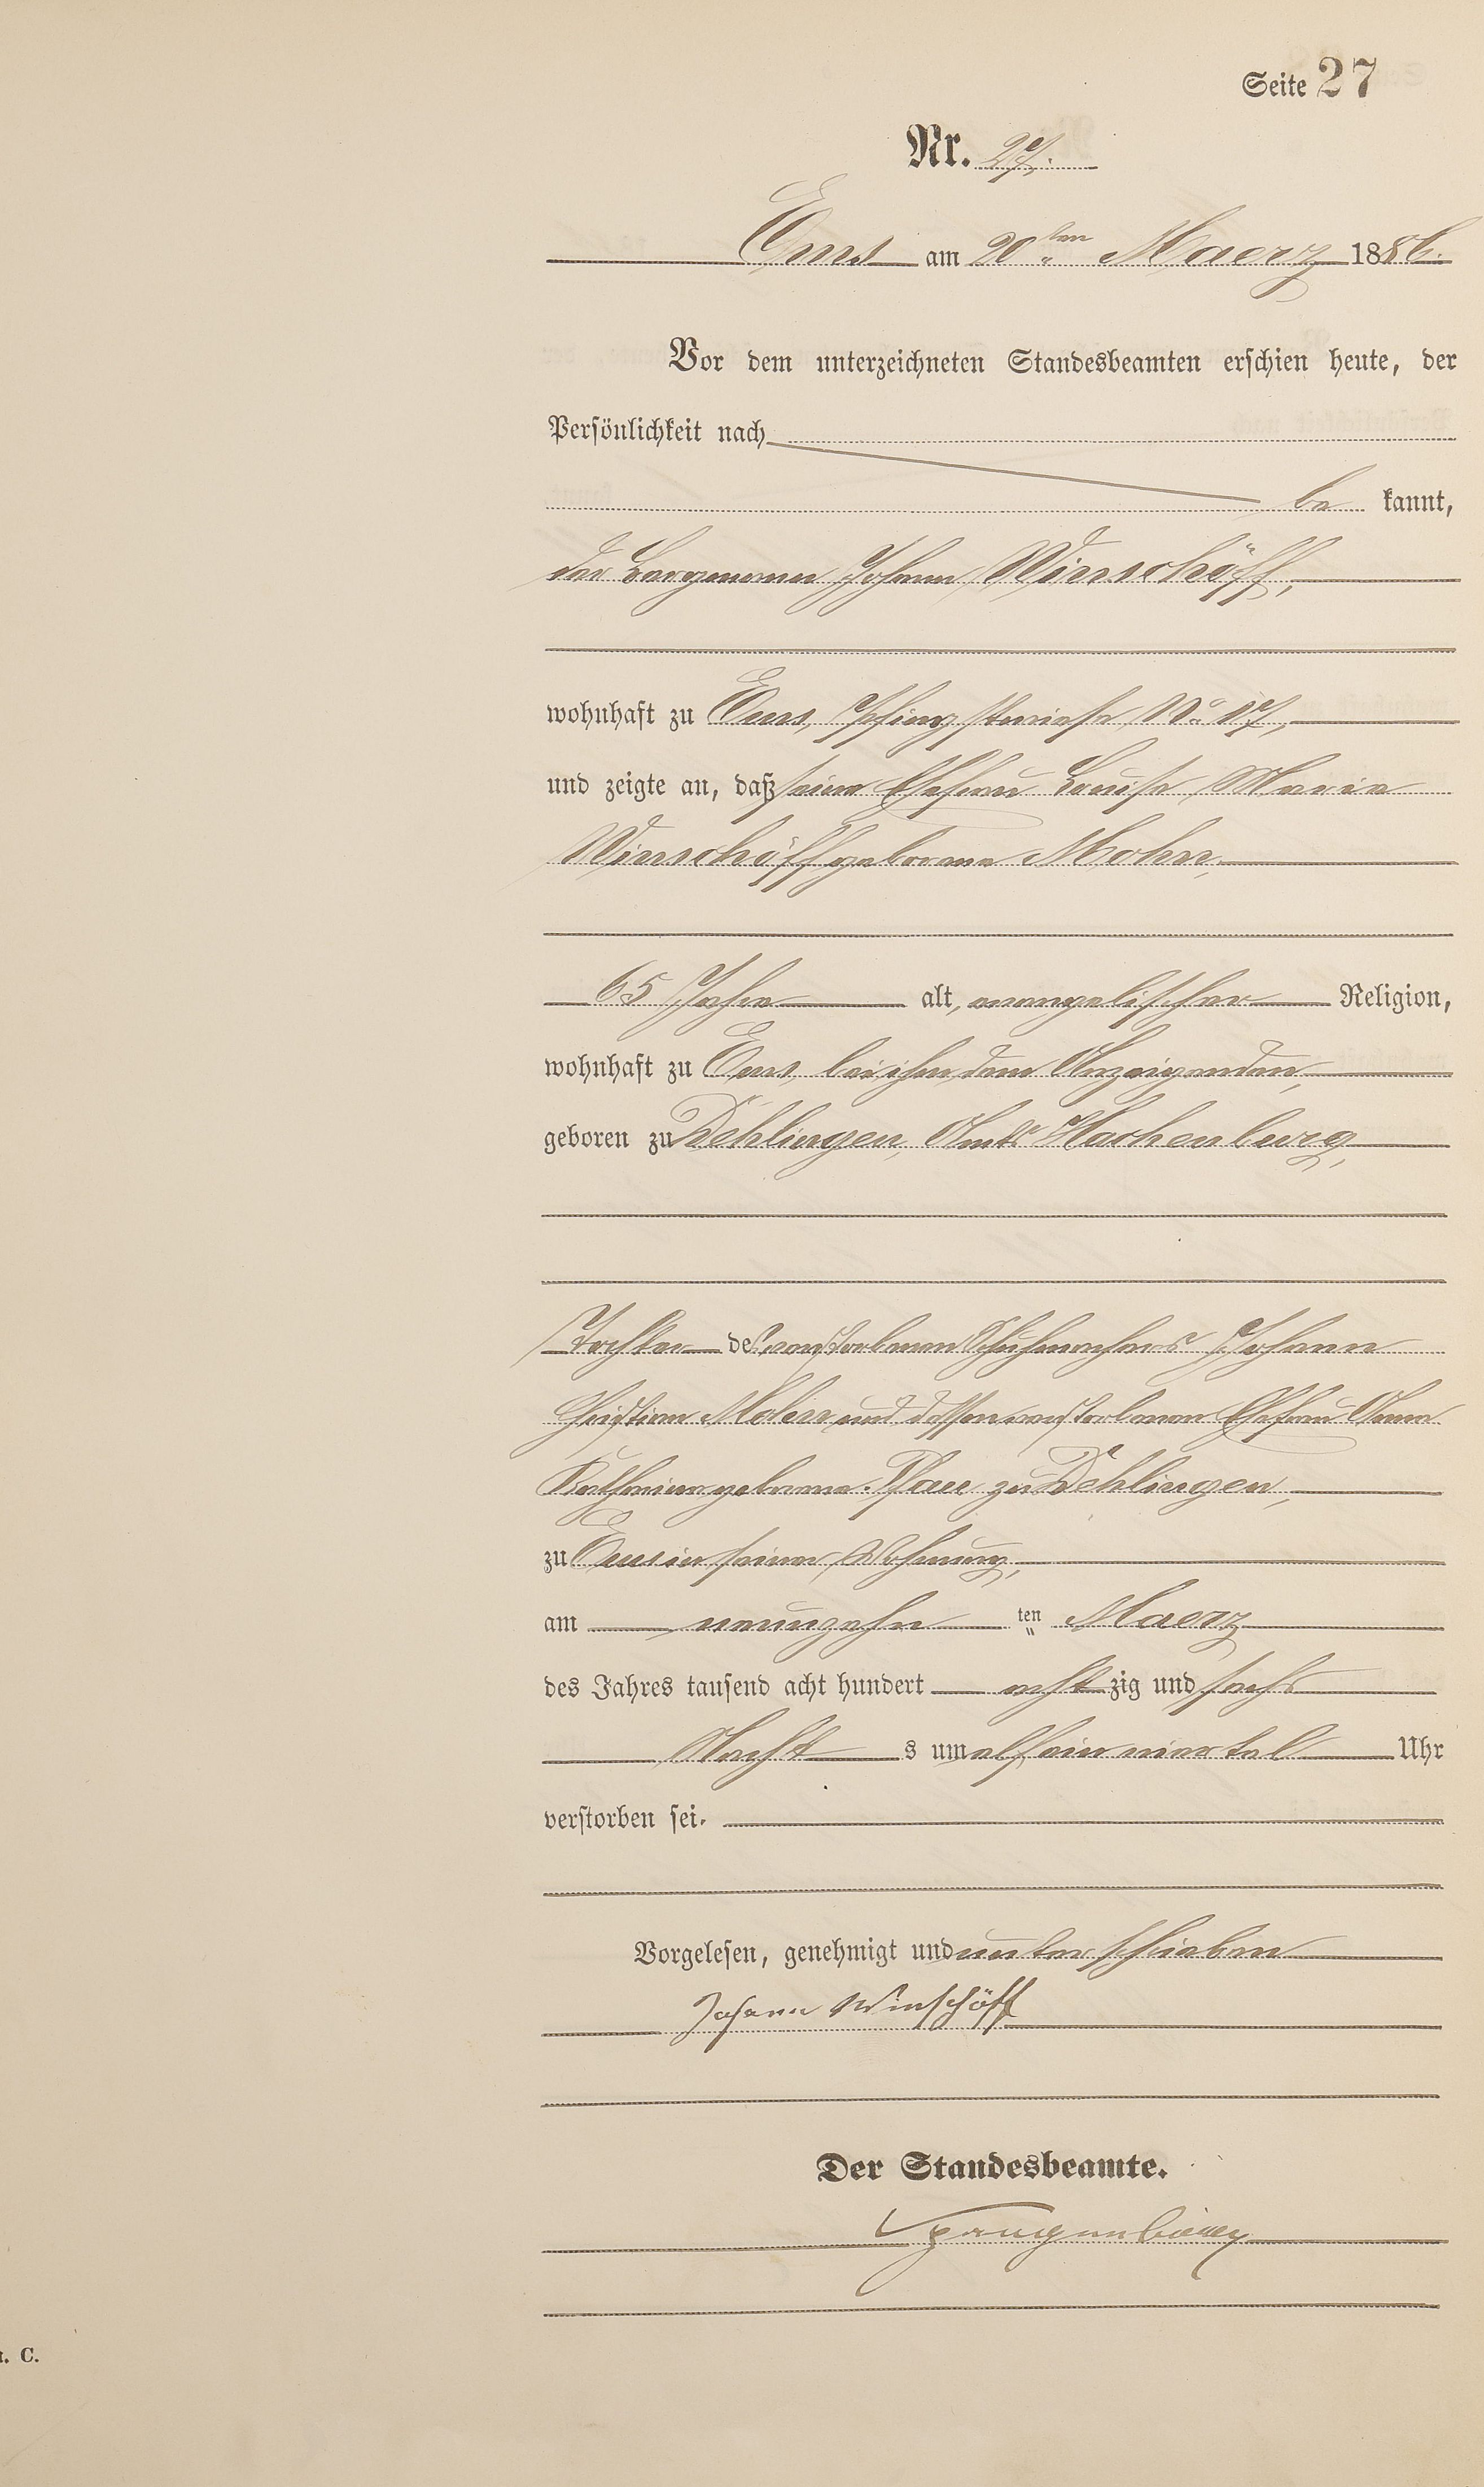 Seite 27
Nr. 27.
Ems am 20ten Maerz 1886.
Vor dem unterzeichneten Standesbeamten erschien heute, der
Persönlichkeit nach
be kannt,
der Bergmann Johann Winschöff,
wohnhaft zu Ems, Pfingstwiese No 17,
und zeigte an, daß seine Ehefrau Louise Maria
Winschöff geborene Mohr,
65 Jahre alt, evangelischer Religion,
wohnhaft zu Ems, bei ihm, dem Anzeigenden,
geboren zu Dehlingen, Amts Hachenburg,
Tochter des verstorbenen Schuhmachers Johann
Christian Mohr und dessen verstorbenen Ehefrau Anna
Katharina geborene zu Dehlingen,
zu Ems in seiner Wohnung,
am neunzehn ten Maerz
des Jahres tausend acht hundert acht zig und sechs
Nacht s um elf ein viertel Uhr
verstorben sei.
Vorgelesen, genehmigt und unterschrieben
Johann Winschöff
Der Standesbeamte.
Spangenberg
. C.